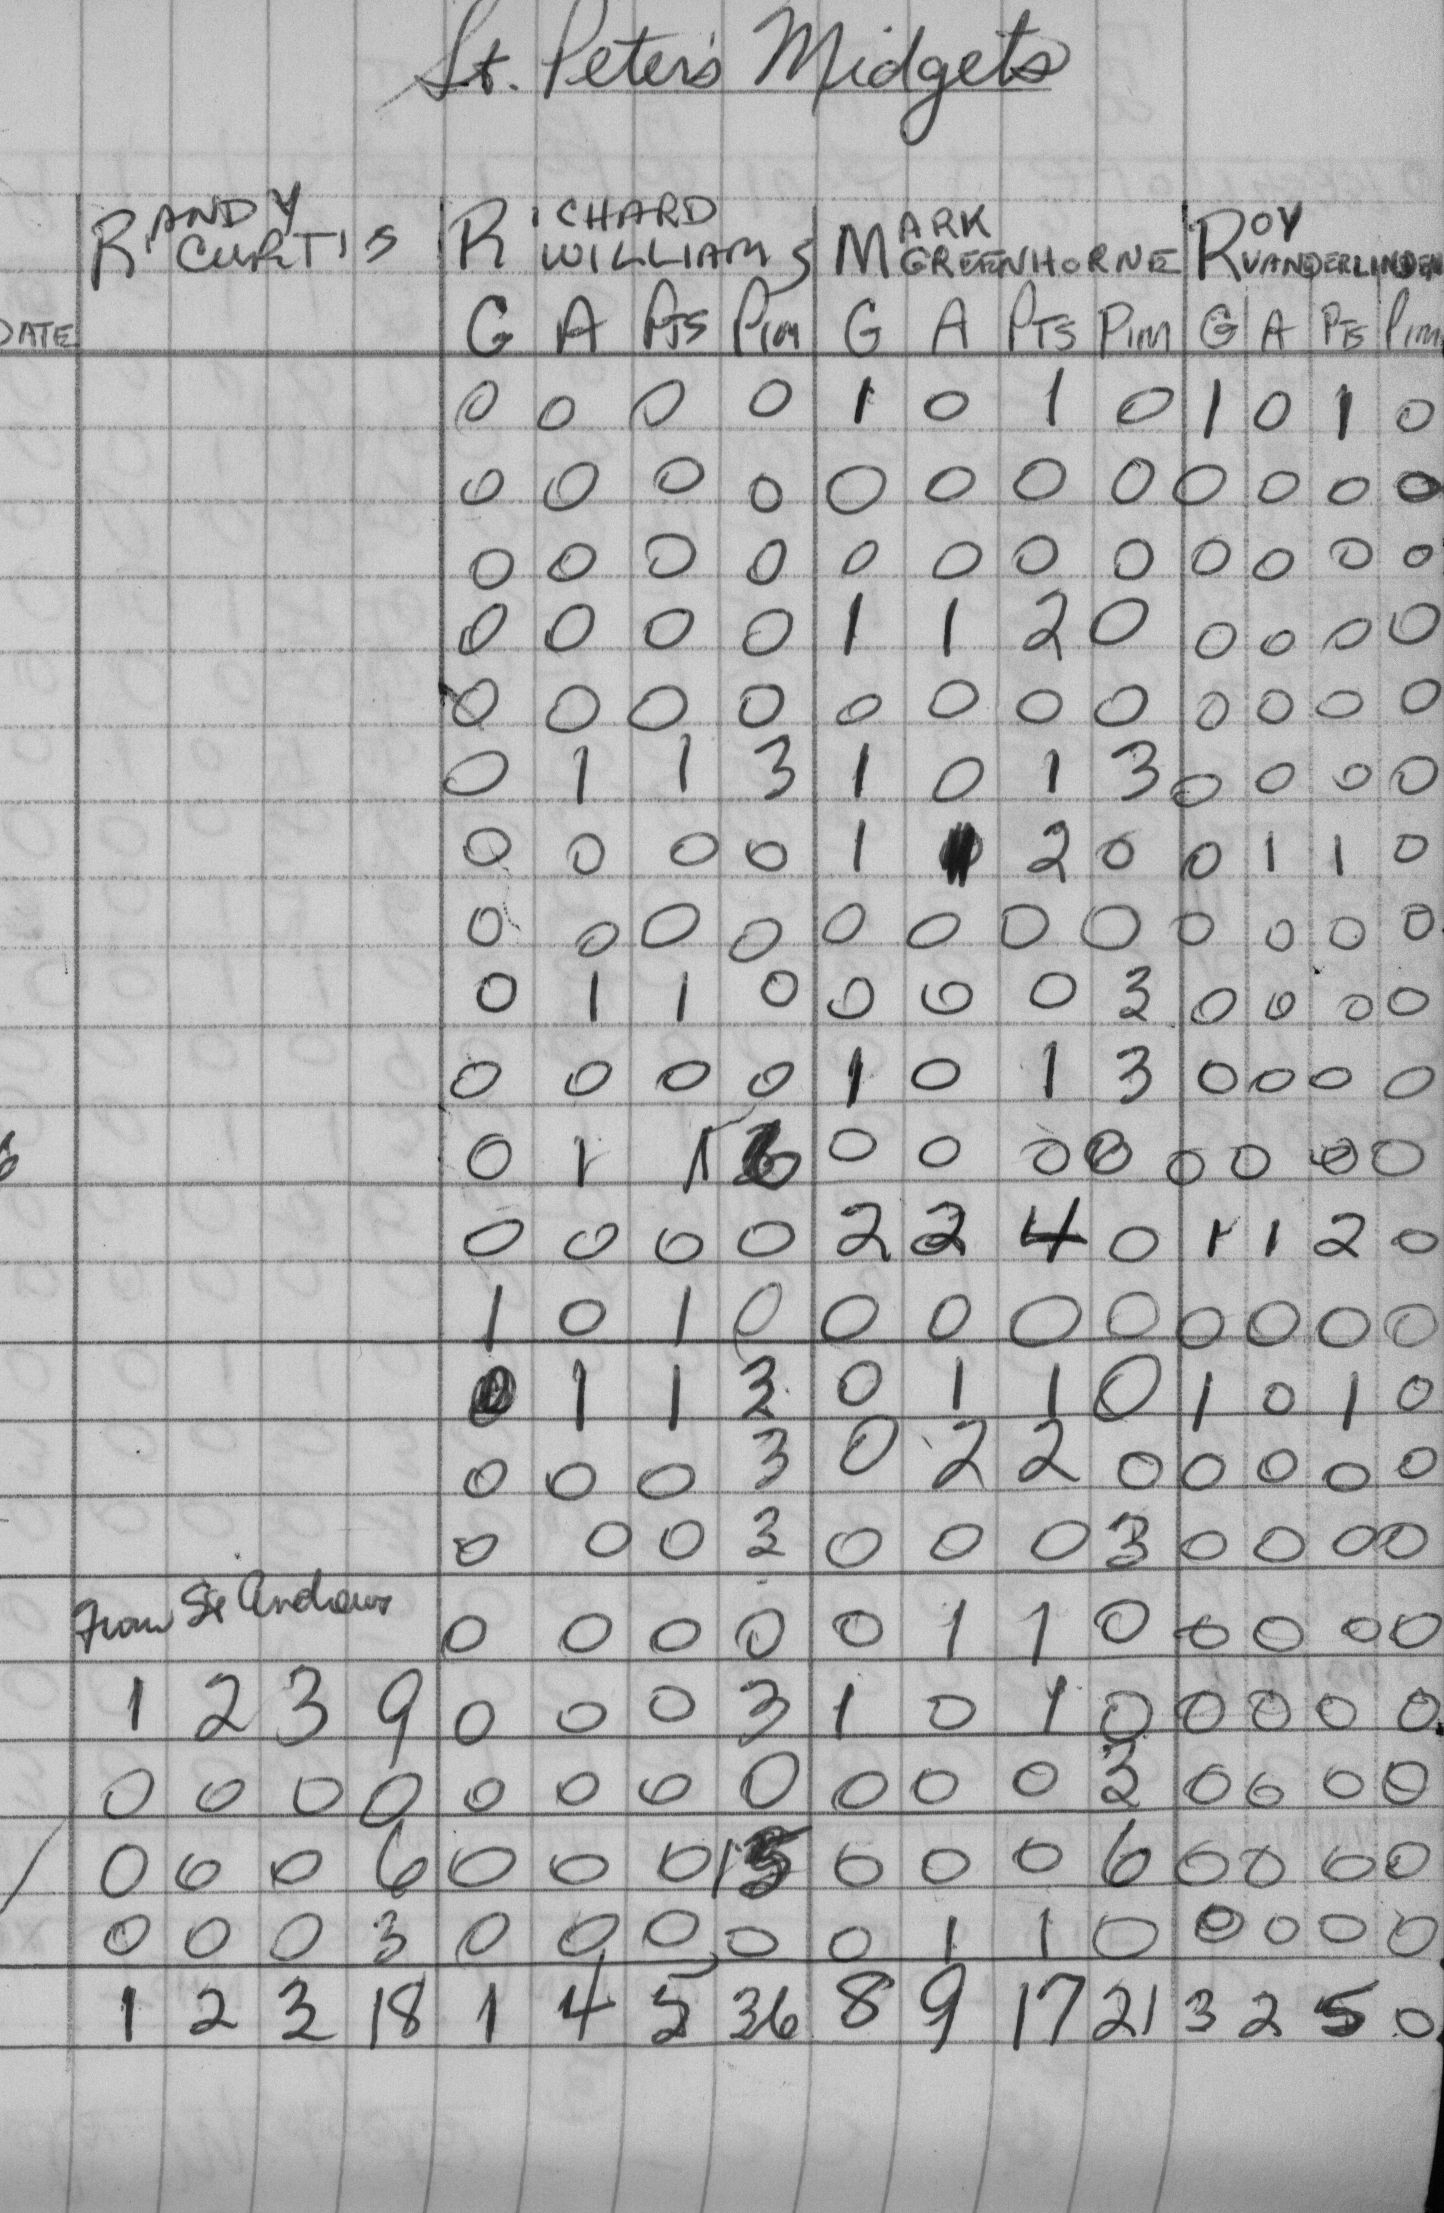 St. Peter's Midgets
RANDY CURTIS RICHARD WILLIAMS MARK GREENHORNE ROY VANDERLINDEN
DATE G A PTS PIM G A PTS PIM G A PTS PIM
0 0 0 0 1 0 1 0 1 0 1 0
0 0 0 0 0 0 0 0 0 0 0 0
0 0 0 0 0 0 0 0 0 0 0 0
0 0 0 0 1 1 2 0 0 0 0 0
0 0 0 0 0 0 0 0 0 0 0 0
0 1 1 3 1 0 1 3 0 0 0 0
0 0 0 0 1 2 0 0 1 1 0
0 0 0 0 0 0 0 0 0 0 0 0
0 1 1 0 0 0 0 3 0 0 0 0
0 0 0 0 1 0 1 3 0 0 0 0
0 1 1 6 0 0 0 0 0 0 0 0
0 0 0 0 2 2 4 0 1 1 2 0
1 0 1 0 0 0 0 0 0 0 0 0
0 1 1 3 0 1 1 0 1 0 1 0
0 0 0 3 0 2 2 0 0 0 0 0
0 0 0 3 0 0 0 3 0 0 0 0
From St Andrews 0 0 0 0 0 1 1 0 0 0 0 0
1 2 3 9 0 0 0 3 1 0 1 0 0 0 0 0
0 0 0 0 0 0 0 0 0 0 0 3 0 0 0 0
0 0 0 6 0 0 0 15 0 0 0 6 0 0 0 0
0 0 0 3 0 0 0 0 0 1 1 0 0 0 0 0
1 2 3 18 1 4 5 36 8 9 17 21 3 2 5 0